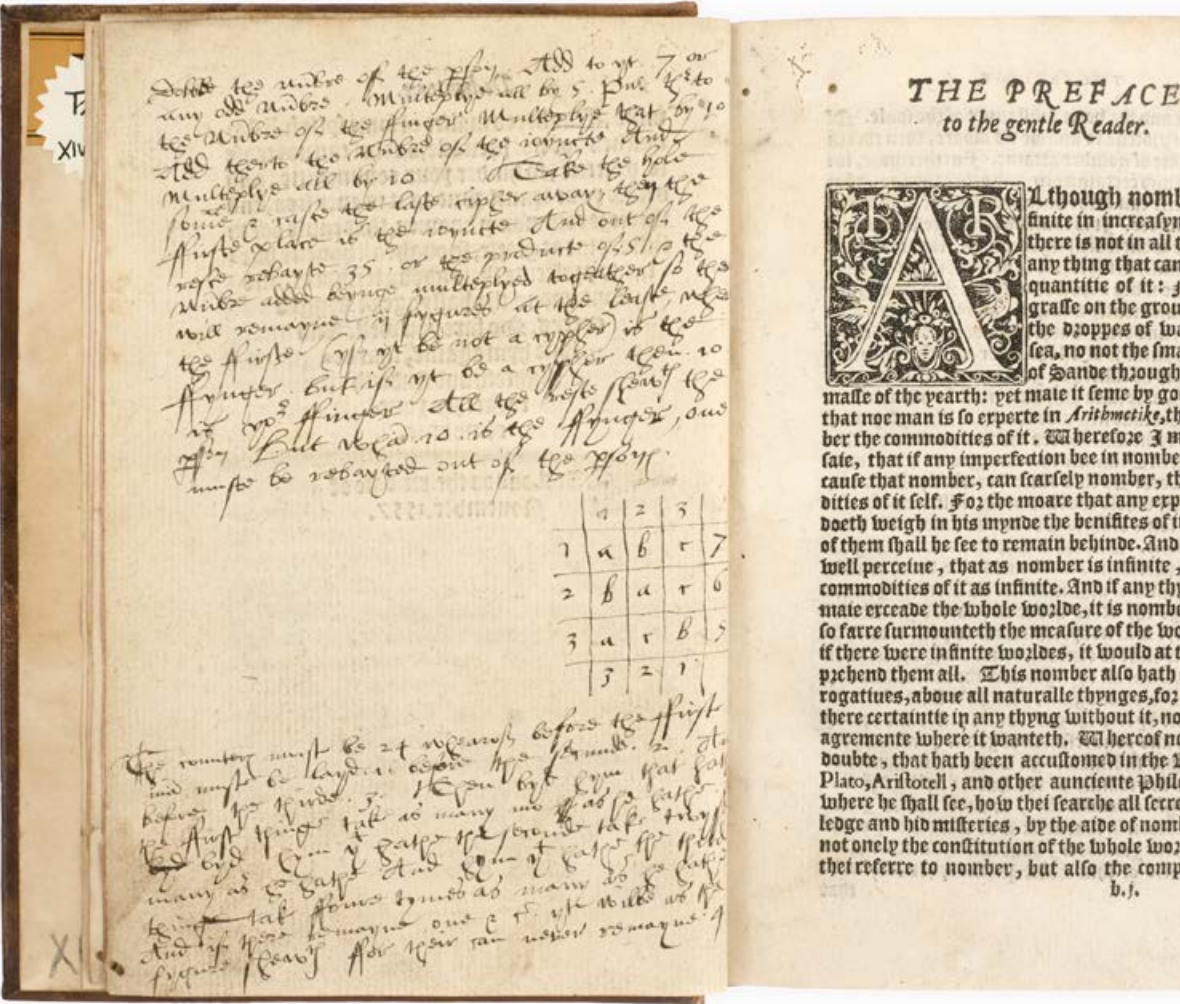 Doble the nũbre of the pson. Add to yt. 7 or
any odd nũbre. Multeplye all by 5. Put therto
the nũbre of the ffinger Multeplye that by 10
Add therto the nũbre of the ioyncte And
Multeplye all by 10 Take the hole
some & caste the last cipher away then the
ffirste place is the ioyncte And out of the
reste rebayte 35. or the producte of 5. & the
nũbre added beynge multeplyed togeather so the
will remayne ij fygures at the leaste, whe
the ffirste (yf yt be not a cypher) is the
ffynger. but if yt be a cypher then 10
is yor ffinger All the reste sheweth the
pson But whã 10 is the ffynger, one
muste be rebayted out of the pson.
1 2 3
1 a b c 7
2 b a c 6
3 a c b 5
3 2 1
The counters must be 24 wheareof before the ffirst
must be layd 1. before the seconde. 2. An
before the thirde. 3. Then byd hym that hat
the first thinge take as many mo as he hathe
byd hym yt hathe the seconde take twyse
many as he hathe And hym yt hathe the third
thing tak ffoure tymes as many as he hathe
And if there remayne one & yt wilbe as
fygure sheweth ffor their can never remayne 4
XIV
X
THE PREFACE
to the gentle Reader.
ALthough nomb
finite in increasyn
there is not in all t
any thing that can
quantitie of it:
grasse on the grou
the droppes of wa
sea, no not the sma
of Sande through
masse of the yearth: yet maie it seme by go
that noe man is so experte in Arithmetike, th
ber the commodities of it. Wherefore I m
saie, that if any imperfection bee in nombe
cause that nomber, can scarsely nomber, th
dities of it self. For the moare that any exp
doeth weigh in his mynde the benifites of i
of them shall he see to remain behinde. And
well perceiue, that as nomber is infinite,
commodities of it as infinite. And if any thy
maie exceade the whole worlde, it is nombe
so farre surmounteth the measure of the wo
if there were infinite worldes, it would at t
prehend them all. This nomber also hath
rogatiues, aboue all naturalle thynges, for
there certaintie in any thyng without it, no
agremente where it wanteth. Whereof no
doubte, that hath been accustomed in the
Plato, Aristotell, and other aunciente Phil
where he shall see, how thei searche all secre
ledge and hid misteries, by the aide of nom
not onely the constitution of the whole wor
thei referre to nomber, but also the comp
b.j.